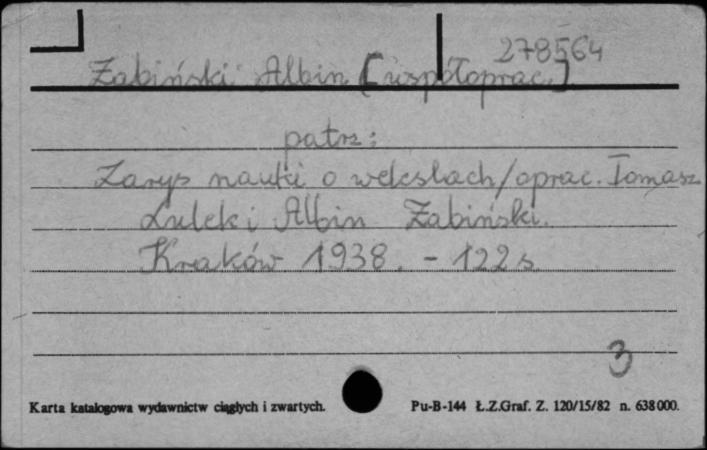 278564
Żabiński Albin [współoprac.]
patrz:
Zarys nauki o wekslach/oprac. Tomasz
Lulek i Albin Żabiński.
Kraków 1938. - 122 s
3
Karta katalogowa wydawnictw ciągłych i zwartych.
Pu-B-144 Ł.Z.Graf. Z. 120/15/82 n. 638000.